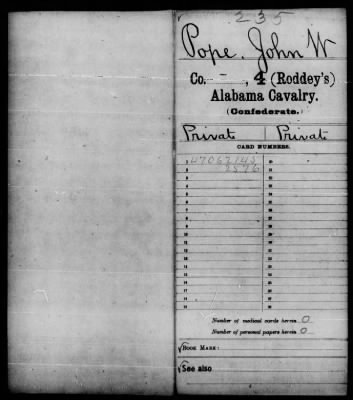 235
Pope, John W
Co. –, 4 (Roddey's)
Alabama Cavalry.
(Confederate.)
Privat Privat
CARD NUMBERS.
1 47067148 19
2 2576 20
3 21
4 22
5 23
6 24
7 25
8 26
9 27
10 28
11 29
12 30
13 31
14 32
15 33
16 34
17 35
18 36
Number of medical cards herein 0
Number of personal papers herein 0
BOOK MARK:
See also